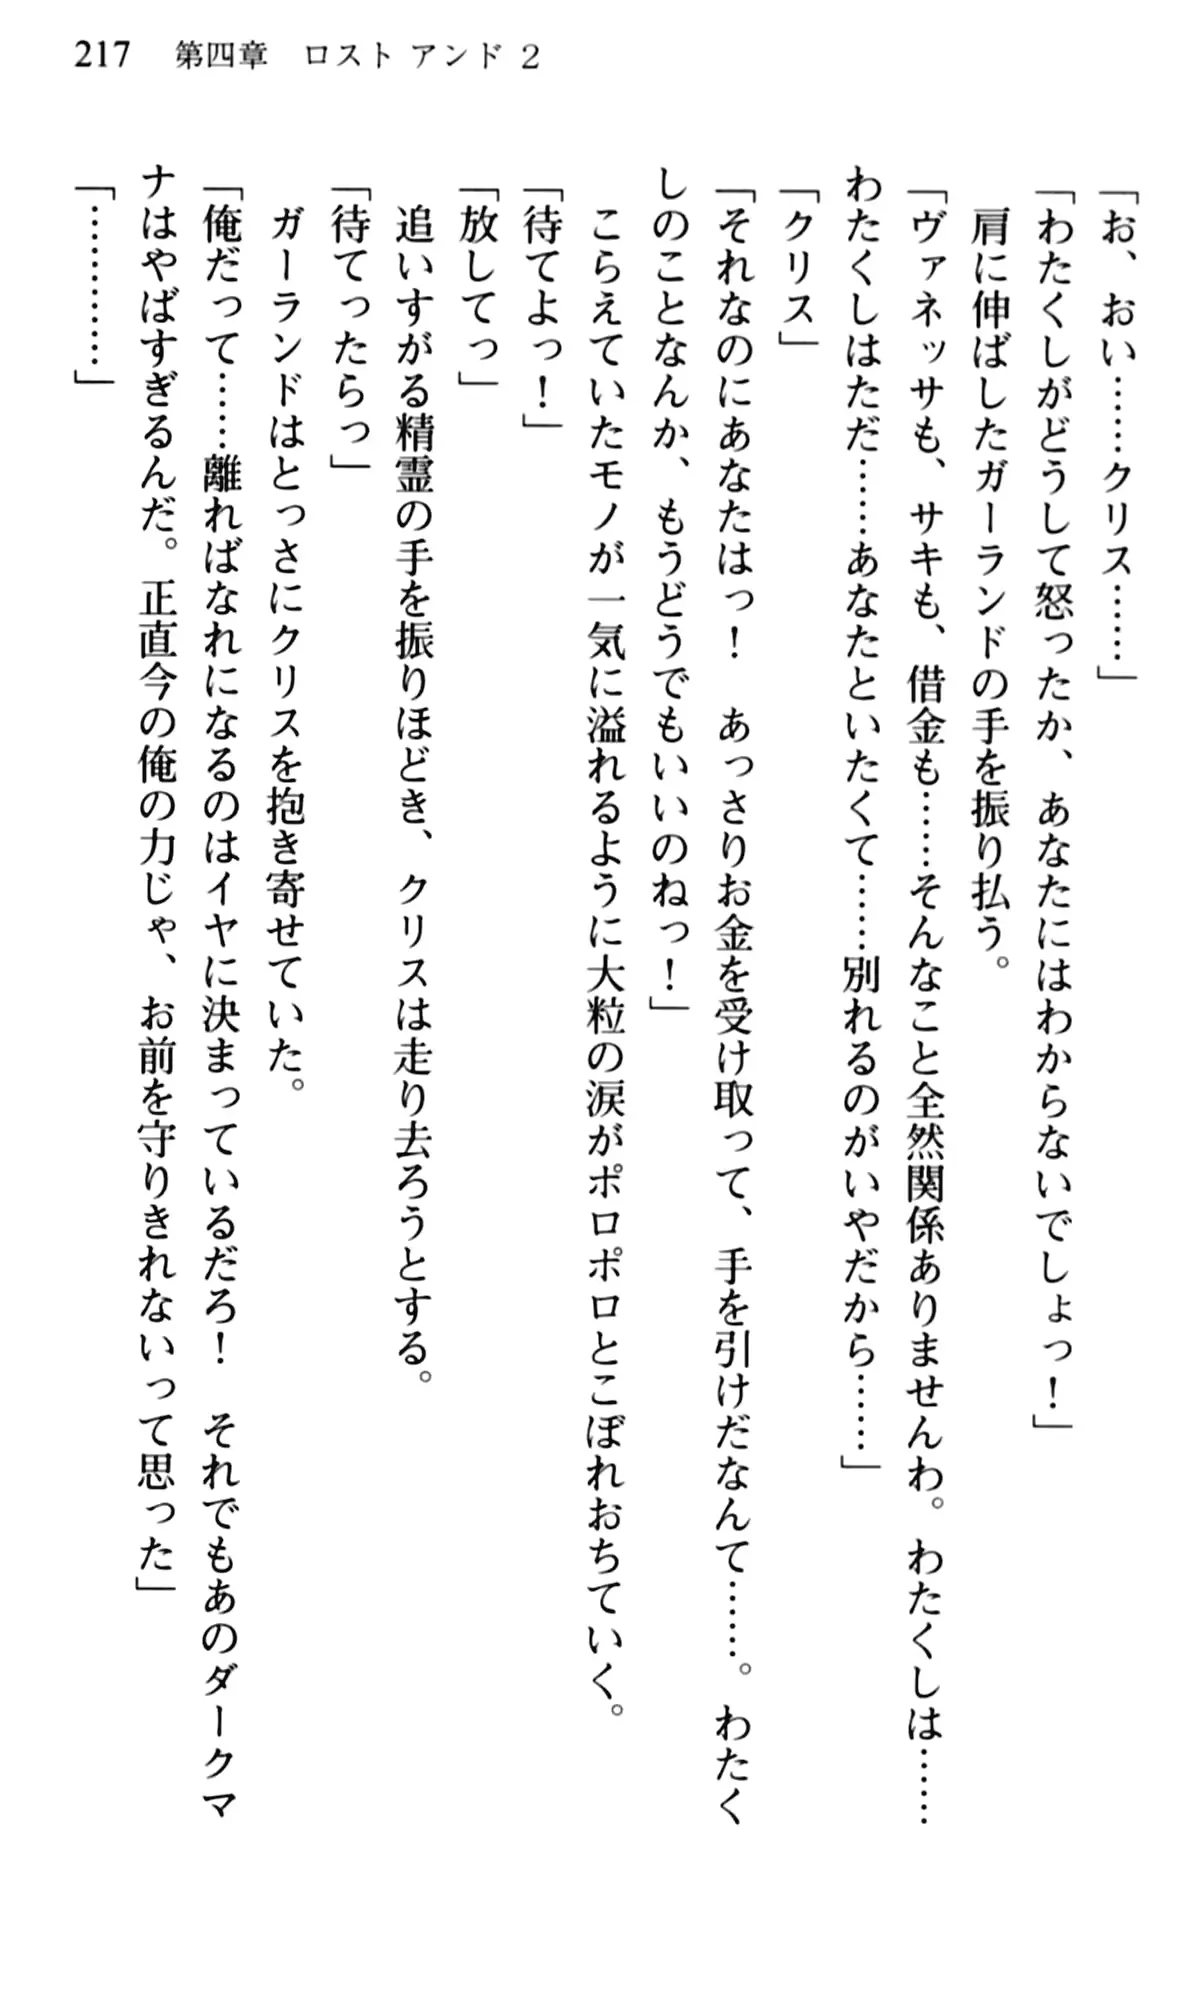 217　第四章　ロスト アンド 2
「お、おい……クリス……」
「わたくしがどうして怒ったか、あなたにはわからないでしょっ！」
　肩に伸ばしたガーランドの手を振り払う。
「ヴァネッサも、サキも、借金も……そんなこと全然関係ありませんわ。わたくしは……
わたくしはただ……あなたといたくて……別れるのがいやだから……」
「クリス」
「それなのにあなたはっ！　あっさりお金を受け取って、手を引けだなんて……。わたく
しのことなんか、もうどうでもいいのねっ！」
　こらえていたモノが一気に溢れるように大粒の涙がポロポロとこぼれおちていく。
「待てよっ！」
「放してっ」
　追いすがる精霊の手を振りほどき、クリスは走り去ろうとする。
「待てったらっ」
　ガーランドはとっさにクリスを抱き寄せていた。
「俺だって……離ればなれになるのはイヤに決まっているだろ！　それでもあのダークマ
ナはやばすぎるんだ。正直今の俺の力じゃ、お前を守りきれないって思った」
「…………」